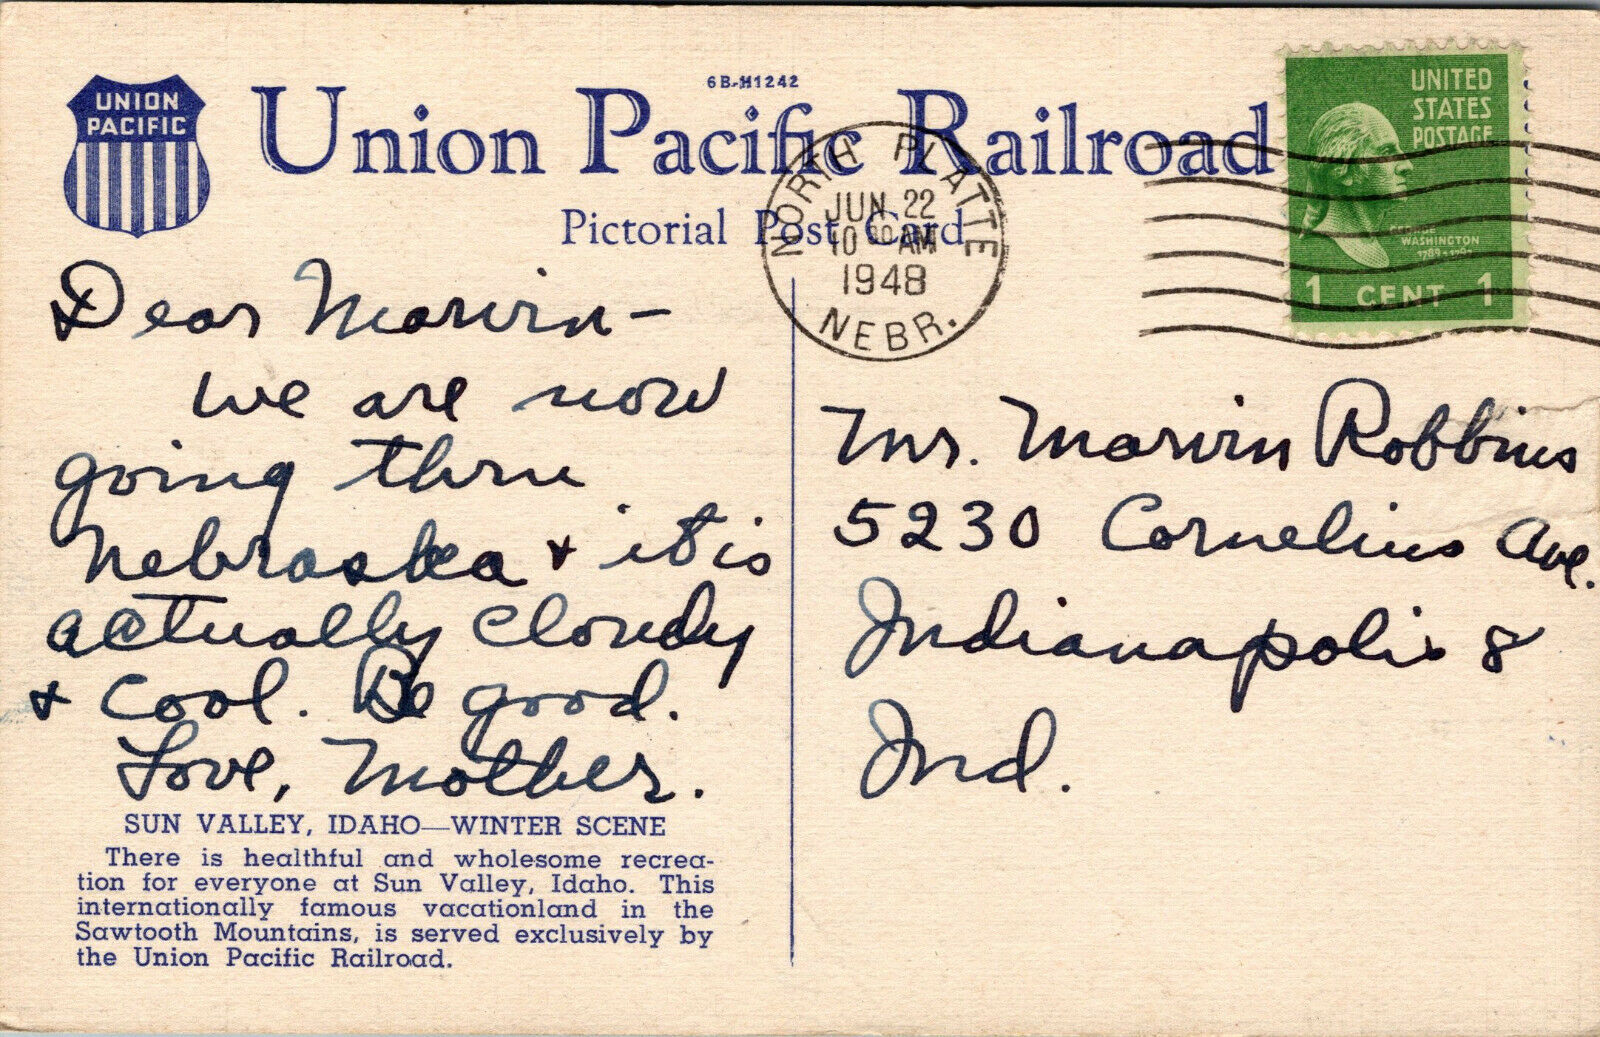 6B-H1242
UNION
PACIFIC
Union Pacific Railroad
Pictorial Post Card
NORTH PLATTE
JUN 22
10 30 AM
1948
NEBR.
UNITED
STATES
POSTAGE
GEORGE
WASHINGTON
1789-1797
1 CENT 1
Dear Marvin-
We are now
going thru
Nebraska + it is
actually cloudy
+ cool. Be good.
Love, Mother.
SUN VALLEY, IDAHO—WINTER SCENE
There is healthful and wholesome recrea-
tion for everyone at Sun Valley, Idaho. This
internationally famous vacationland in the
Sawtooth Mountains, is served exclusively by
the Union Pacific Railroad.
Mr. Marvin Robbins
5230 Cornelius Ave.
Indianapolis 8
Ind.